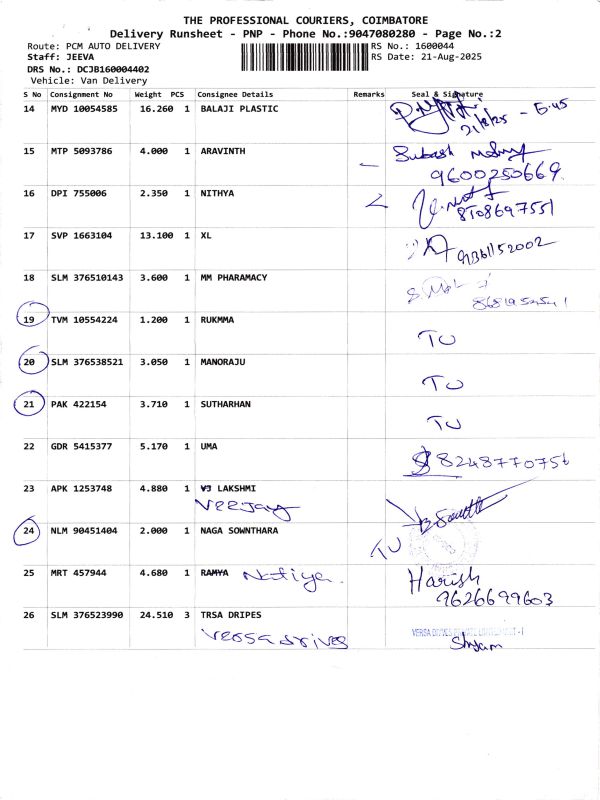 THE PROFESSIONAL COURIERS, COIMBATORE
Delivery Runsheet - PNP - Phone No.:9047080280 - Page No.:2
Route: PCM AUTO DELIVERY RS No.: 1600044
Staff: JEEVA RS Date: 21-Aug-2025
DRS No.: DCJB160004402
Vehicle: Van Delivery
S No Consignment No Weight PCS Consignee Details Remarks Seal & Signature
14 MYD 10054585 16.260 1 BALAJI PLASTIC
21/8/25 - 5.45
15 MTP 5093786 4.000 1 ARAVINTH Subash
9600250669
16 DPI 755006 2.350 1 NITHYA
8508697551
17 SVP 1663104 13.100 1 XL
9361152002
18 SLM 376510143 3.600 1 MM PHARAMACY
19 TVM 10554224 1.200 1 RUKMMA TU
20 SLM 376538521 3.050 1 MANORAJU TU
21 PAK 422154 3.710 1 SUTHARHAN TU
22 GDR 5415377 5.170 1 UMA 8248770756
23 APK 1253748 4.880 1 VJ LAKSHMI
VEEJAY
24 NLM 90451404 2.000 1 NAGA SOWNTHARA TU
25 MRT 457944 4.680 1 RAMYA Natiya. Harish
9626699603
26 SLM 376523990 24.510 3 TRSA DRIPES
versa drives VERSA DRIVES PRIVATE LIMITED UNIT - I
Shyam